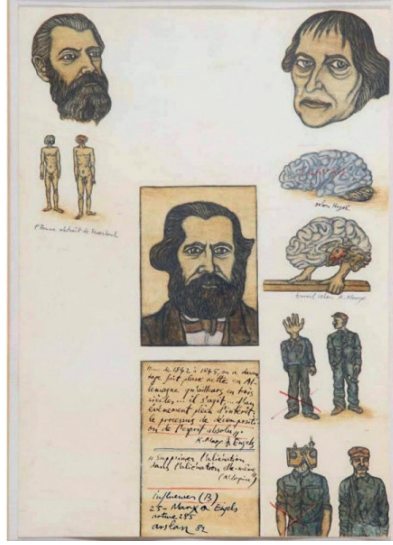 L'homme abstrait de Feuerbach
selon Hegel
travail selon K. Marx
« ... de 1842 à 1845, on a davan-
tage fait place nette en Al-
lemagne qu'ailleurs en trois
siècles... il s'agit... d'un
événement plein d'intérêt:
le processus de décompositi-
on de l'esprit absolu».
K. Marx & Engels
« supprimer l'aliénation
dans l'aliénation elle-même
Influences (B)
25- Marx & Engels
arture 255
arslan 82